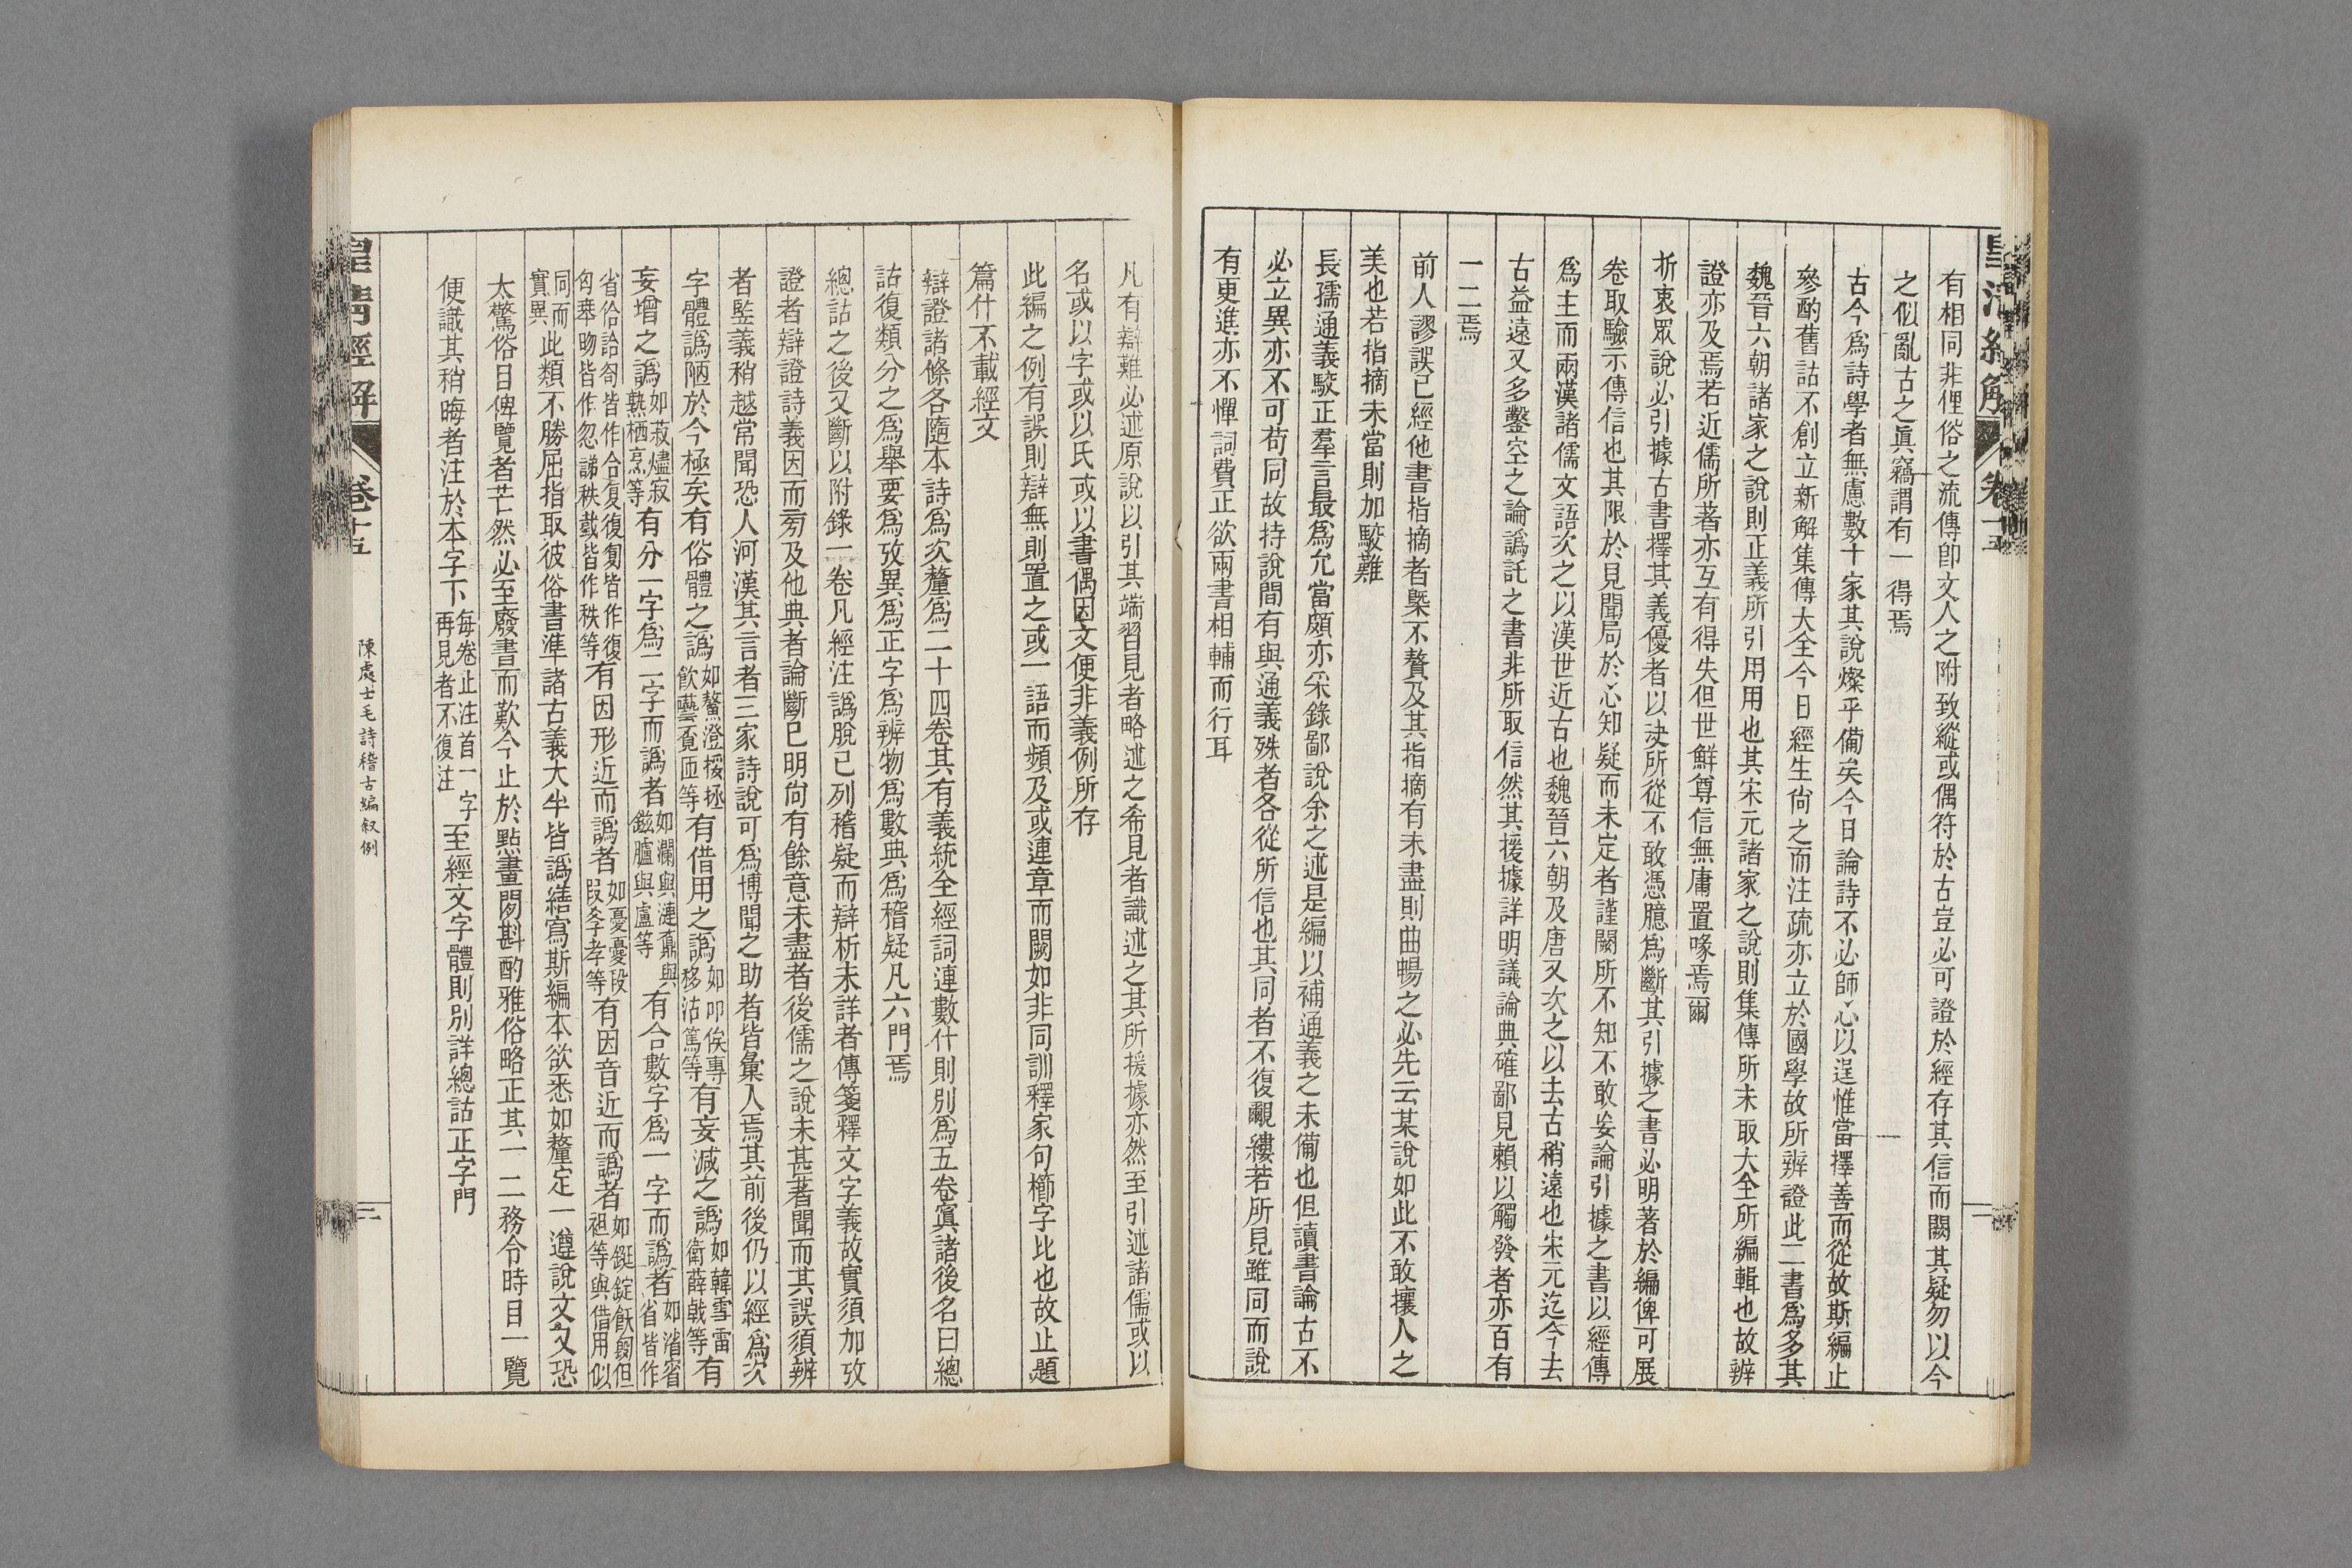 皇清經解 卷十五
有相同非俚俗之流傳卽文人之附致縱或偶符於古豈必可證於經存其信而闕其疑勿以今
之似亂古之眞竊謂有一得焉
古今爲詩學者無慮數十家其說燦乎備矣今日論詩不必師心以逞惟當擇善而從故斯編止
參酌舊詁不創立新解集傳大全今日經生尙之而注疏亦立於國學故所辨證此二書爲多其
魏晉六朝諸家之說則正義所引用用也其宋元諸家之說則集傳所未取大全所編輯也故辨
證亦及焉若近儒所著亦互有得失但世鮮尊信無庸置喙焉爾
折衷眾說必引據古書擇其義優者以決所從不敢憑臆爲斷其引據之書必明著於編俾可展
卷取驗示傳信也其限於見聞局於心知疑而未定者謹闕所不知不敢妄論引據之書以經傳
爲主而兩漢諸儒文語次之以漢世近古也魏晉六朝及唐又次之以去古稍遠也宋元迄今去
古益遠又多鑿空之論譌託之書非所取信然其援據詳明議論典確鄙見賴以觸發者亦百有
一二焉
前人謬誤已經他書指摘者槩不贅及其指摘有未盡則曲暢之必先云某說如此不敢攘人之
美也若指摘未當則加駮難
長孺通義駮正羣言最爲允當頗亦采錄鄙說余之述是編以補通義之未備也但讀書論古不
必立異亦不可苟同故持說間有與通義殊者各從所信也其同者不復覼縷若所見雖同而說
有更進亦不憚詞費正欲兩書相輔而行耳
凡有辯難必述原說以引其端習見者略述之希見者識述之其所援據亦然至引述諸儒或以
名或以字或以氏或以書偶因文便非義例所存
此編之例有誤則辯無則置之或一語而頻及或連章而闕如非同訓釋家句櫛字比也故止題
篇什不載經文
辯證諸條各隨本詩爲次釐爲二十四卷其有義統全經詞連數什則別爲五卷寘諸後名曰總
詁復類分之爲舉要爲攷異爲正字爲辨物爲數典爲稽疑凡六門焉
總詁之後又斷以附錄一卷凡經注譌脫已列稽疑而辯析未詳者傳箋釋文字義故實須加攷
證者辯證詩義因而旁及他典者論斷已明尙有餘意未盡者後儒之說未甚著聞而其誤須辨
者監義稍越常聞恐人河漢其言者三家詩說可爲博聞之助者皆彙入焉其前後仍以經爲次
字體譌陋於今極矣有俗體之譌如鰲澄挼極飮藝覔匝等有借用之譌如叩俟專移沽篤等有妄減之譌如韓雪雷衛薛戟等有
妄增之譌如菽燼寂熟栖烹等有分一字爲二字而譌者如瀾與漣鼒與鎡臚與盧等有合數字爲一字而譌者如渻㾪省皆作
省佮詥匌皆作合复復匎皆作復匈𦭝昒皆作忽𧛎秩䟴皆作秩等有因形近而譌者如憂㥑夓段叚夅㝅等有因音近而譌者如鋋錠飫匓但袒等與借用似
同而實異此類不勝屈指取彼俗書準諸古義大半皆譌繕寫斯編本欲悉如釐定一遵說文又恐
太驚俗目俾覽者茫然必至廢書而歎今止於點畫閒斟酌雅俗略正其一二務令時目一覽
便識其稍晦者注於本字下每卷止注首一字再見者不復注至經文字體則別詳總詁正字門
皇清經解 卷十五 陳處士毛詩稽古編叙例 二